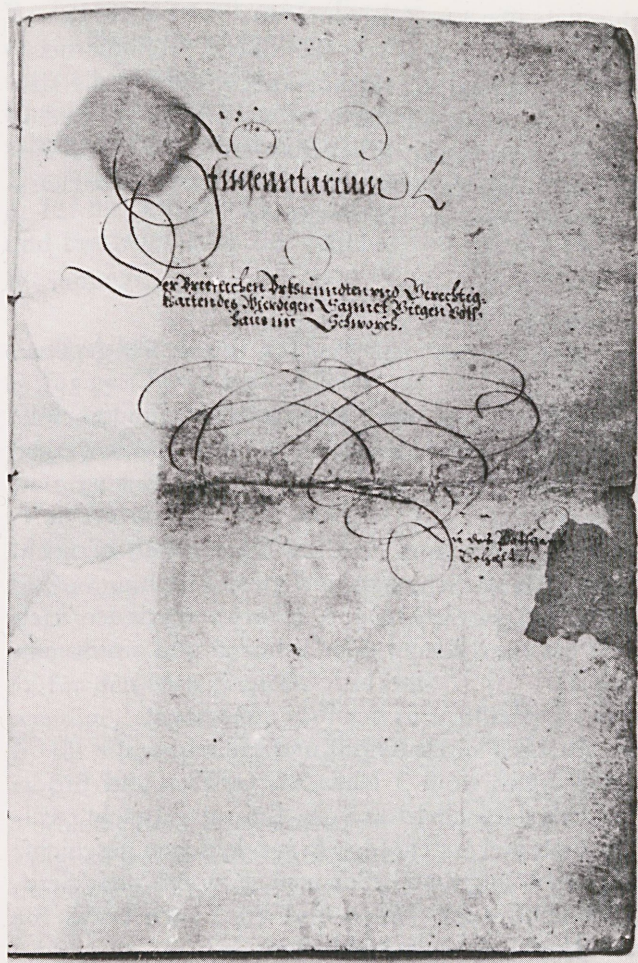 Innventarium
Der Brieflichen Vrkhunndten vnd Gerechtig-
kaiten des Wierdigen Sannct Vitgen Gotts-
haus im Schwoych.
In der